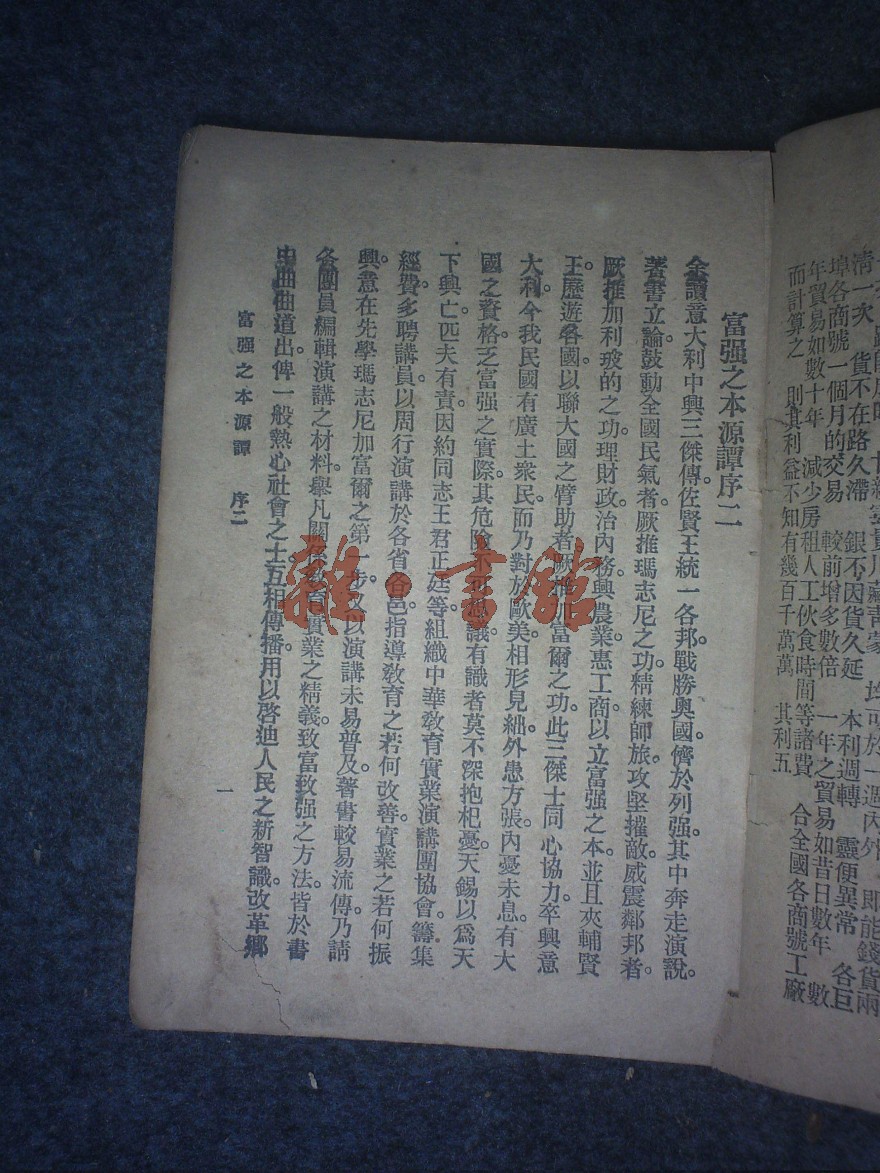 而計算之 則其利益不知有幾百千萬萬 其利五
年貿易如數十年 減少房租人工伙食時間等諸費 合全國各商號工廠
埠各商號一個月的交易 較前增多數倍 一年之貿易如昔日數年 數
清一次 貨不在路久滯 銀不因貨久延 本利週轉 靈便異常 各巨
富强之本源譚序二
余讀意大利中興三傑傳佐賢王統一各邦戰勝奧國。儕於列强。其中奔走演說。
著書立論鼓動全國民氣者厥推瑪志尼之功精練師旅攻堅摧敵威震鄰邦者。
厥推加利玻的之功理財政治內務興農業惠工商以立富强之本並且夾輔賢
王。歷遊各國。以聯大國之臂助者厥推加富爾之功。此三傑士同心協力。卒興意
大利。今我民國有廣土衆民。而乃對於歐美相形見絀。外患方張。內憂未息。有大
國之資格。乏富强之實際。其危險不可思議有識者莫不深抱杞憂。天錫以爲天
下興亡匹夫有責因約同志王君正廷等組織中華敎育實業演講團協會。籌集
經費。多聘講員以周行演講於各省各邑。指導敎育之若何改善。實業之若何振
興。意在先學瑪志尼加富爾之第一步。又以演講未易普及。著書較易流傳。乃請
各團員編輯演講之材料。舉凡關係敎育實業之精義。致富致强之方法。皆於書
中曲曲道出。俾一般熱心社會之士。互相傳播。用以啓迪人民之新智識。改革鄉
富强之本源譚 序二
一
雜·書館